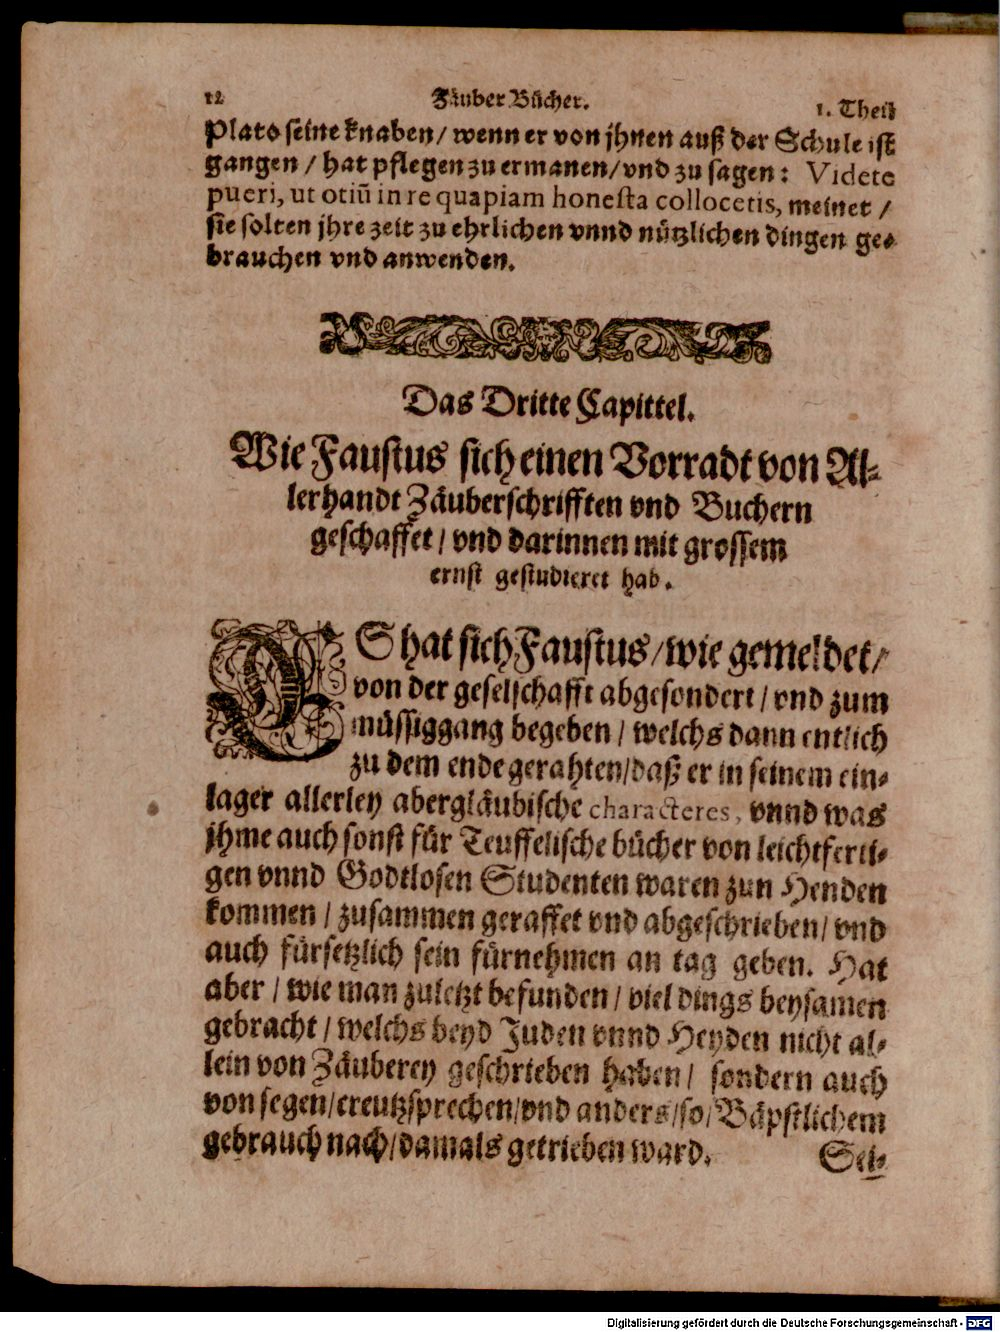 12 Zäuber Bücher. 1. Theil
Plato seine knaben / wenn er von jhnen auß der Schule ist
gangen / hat pflegen zu ermanen / vnd zu sagen: Videte
pueri, ut otiũ in re quapiam honesta collocetis, meinet /
sie solten jhre zeit zu ehrlichen vnnd nützlichen dingen ge-
brauchen vnd anwenden.
Das Dritte Capittel.
Wie Faustus sich einen Vorradt von Al-
lerhandt Zäuberschrifften vnd Buchern
geschaffet / vnd darinnen mit grossem
ernst gestudieret hab.
ES hat sich Faustus / wie gemeldet /
von der gesellschafft abgesondert / vnd zum
müssiggang begeben / welchs dann entlich
zu dem ende gerahten / daß er in seinem ein-
lager allerley abergläubische characteres, vnnd was
jhme auch sonst für Teuffelische bücher von leichtferti-
gen vnnd Godtlosen Studenten waren zun Henden
kommen / zusammen geraffet vnd abgeschrieben / vnd
auch fürsetzlich sein fürnehmen an tag geben. Hat
aber / wie man zuletzt befunden / viel dings beysamen
gebracht / welchs beyd Juden vnnd Heyden nicht al-
lein von Zäuberey geschrieben haben / sondern auch
von segen / creutzsprechen / vnd anders / so / Bäpstlichem
gebrauch nach / damals getrieben ward.
Sei-
Digitalisierung gefördert durch die Deutsche Forschungsgemeinschaft - DFG